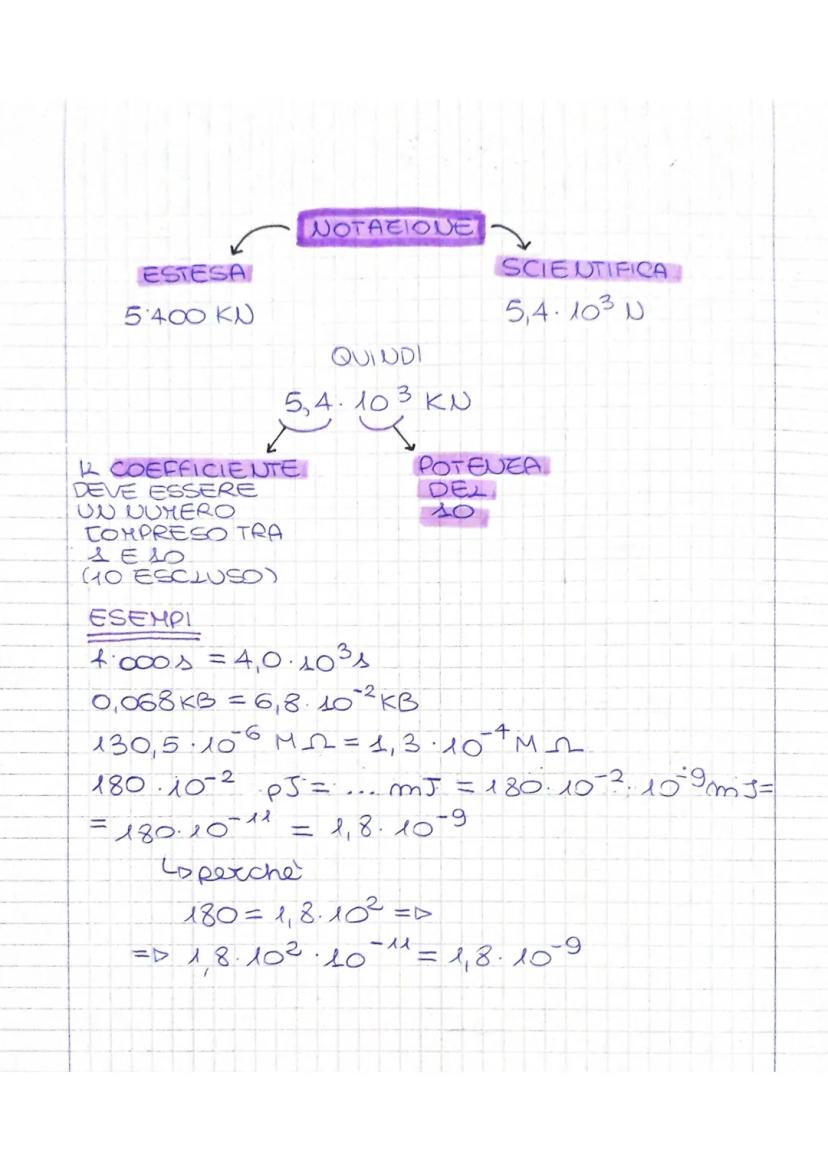 NOTAZIONE
ESTESA
SCIENTIFICA
5˙400 KN
5,4 · 10³ N
QUINDI
5,4 · 10³ KN
IL COEFFICIENTE
DEVE ESSERE
UN NUMERO
COMPRESO TRA
1 E 10
(10 ESCLUSO)
POTENZA
DEL
10
ESEMPI
4˙000 s = 4,0 · 10³ s
0,068 KB = 6,8 · 10⁻² KB
130,5 · 10⁻⁶ MΩ = 1,3 · 10⁻⁴ MΩ
180 · 10⁻² pJ = ... mJ = 180 · 10⁻² · 10⁻⁹ mJ =
= 180 · 10⁻¹¹ = 1,8 · 10⁻⁹
↳ perchè
180 = 1,8 · 10² =>
=> 1,8 · 10² · 10⁻¹¹ = 1,8 · 10⁻⁹